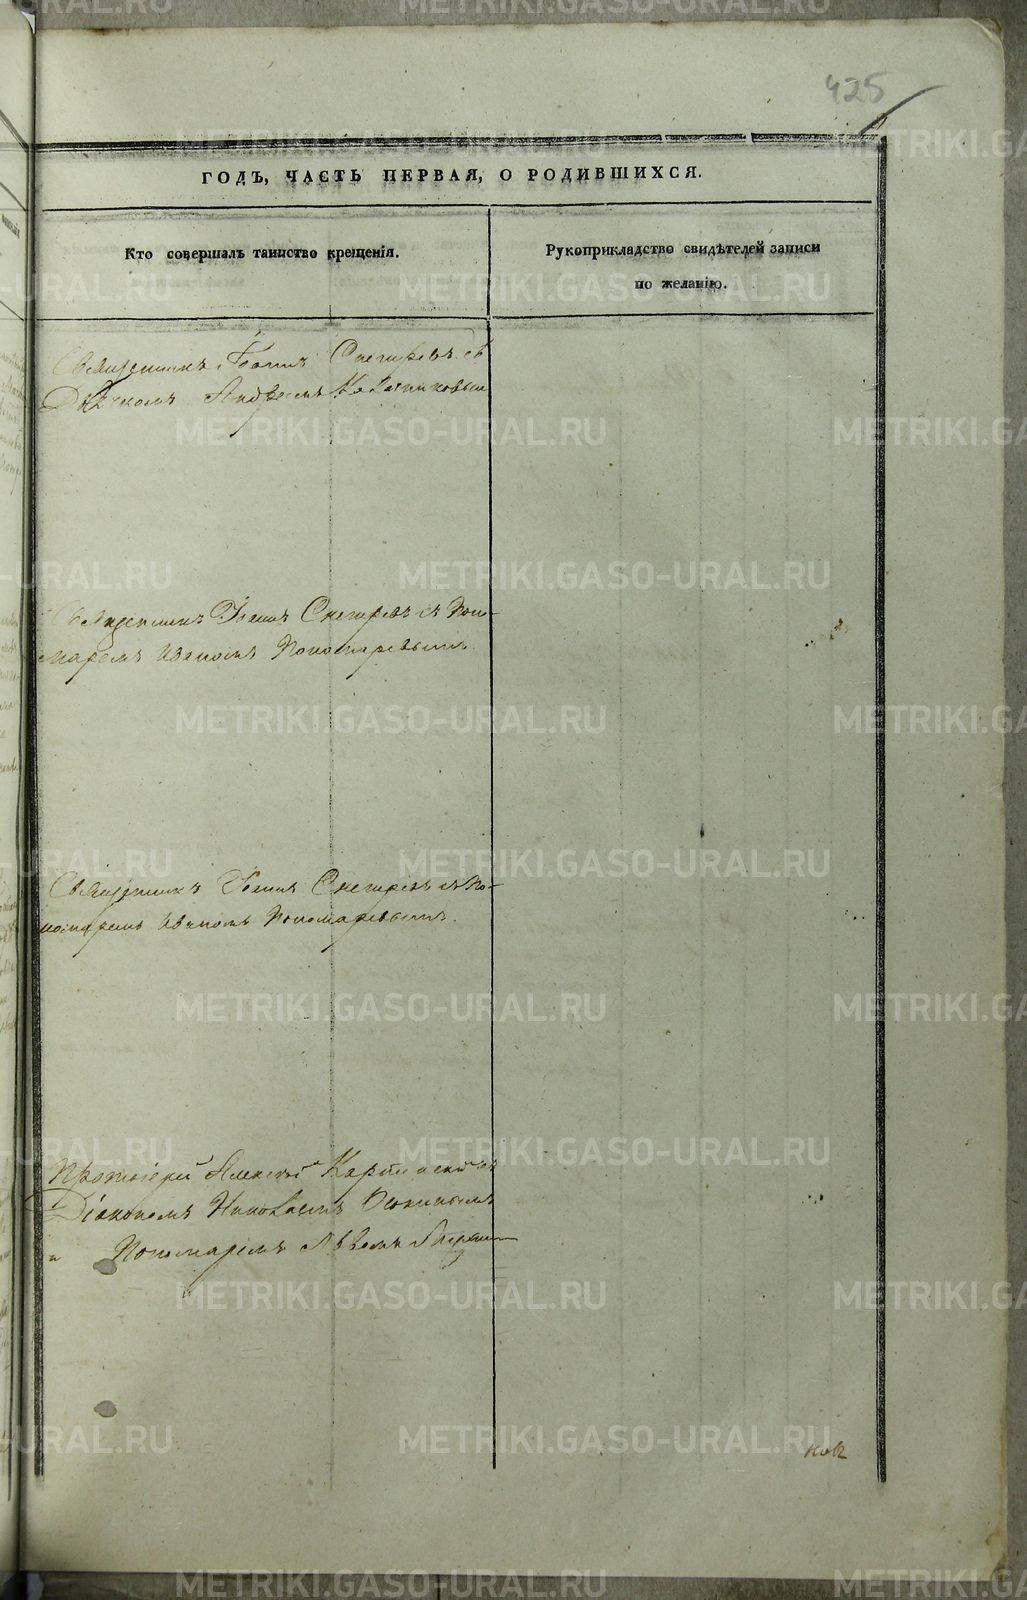 425
ГОДЪ, ЧАСТЬ ПЕРВАЯ, О РОДИВШИХСЯ.
Кто совершалъ таинство крещенія.
Рукоприкладство свидѣтелей записи
по желанію.
Священникъ Іоаннъ Снегиревъ съ
Дьячкомъ Андреемъ
Священникъ Іоаннъ Снегиревъ съ Поно-
маремъ Иваномъ Пономаревымъ.
Священникъ Іоаннъ Снегиревъ съ По-
номаремъ Иваномъ Пономаревымъ.
Протоіерей Алексѣй съ
Діакономъ Николаемъ
и Пономаремъ
METRIKI.GASO-URAL.RU